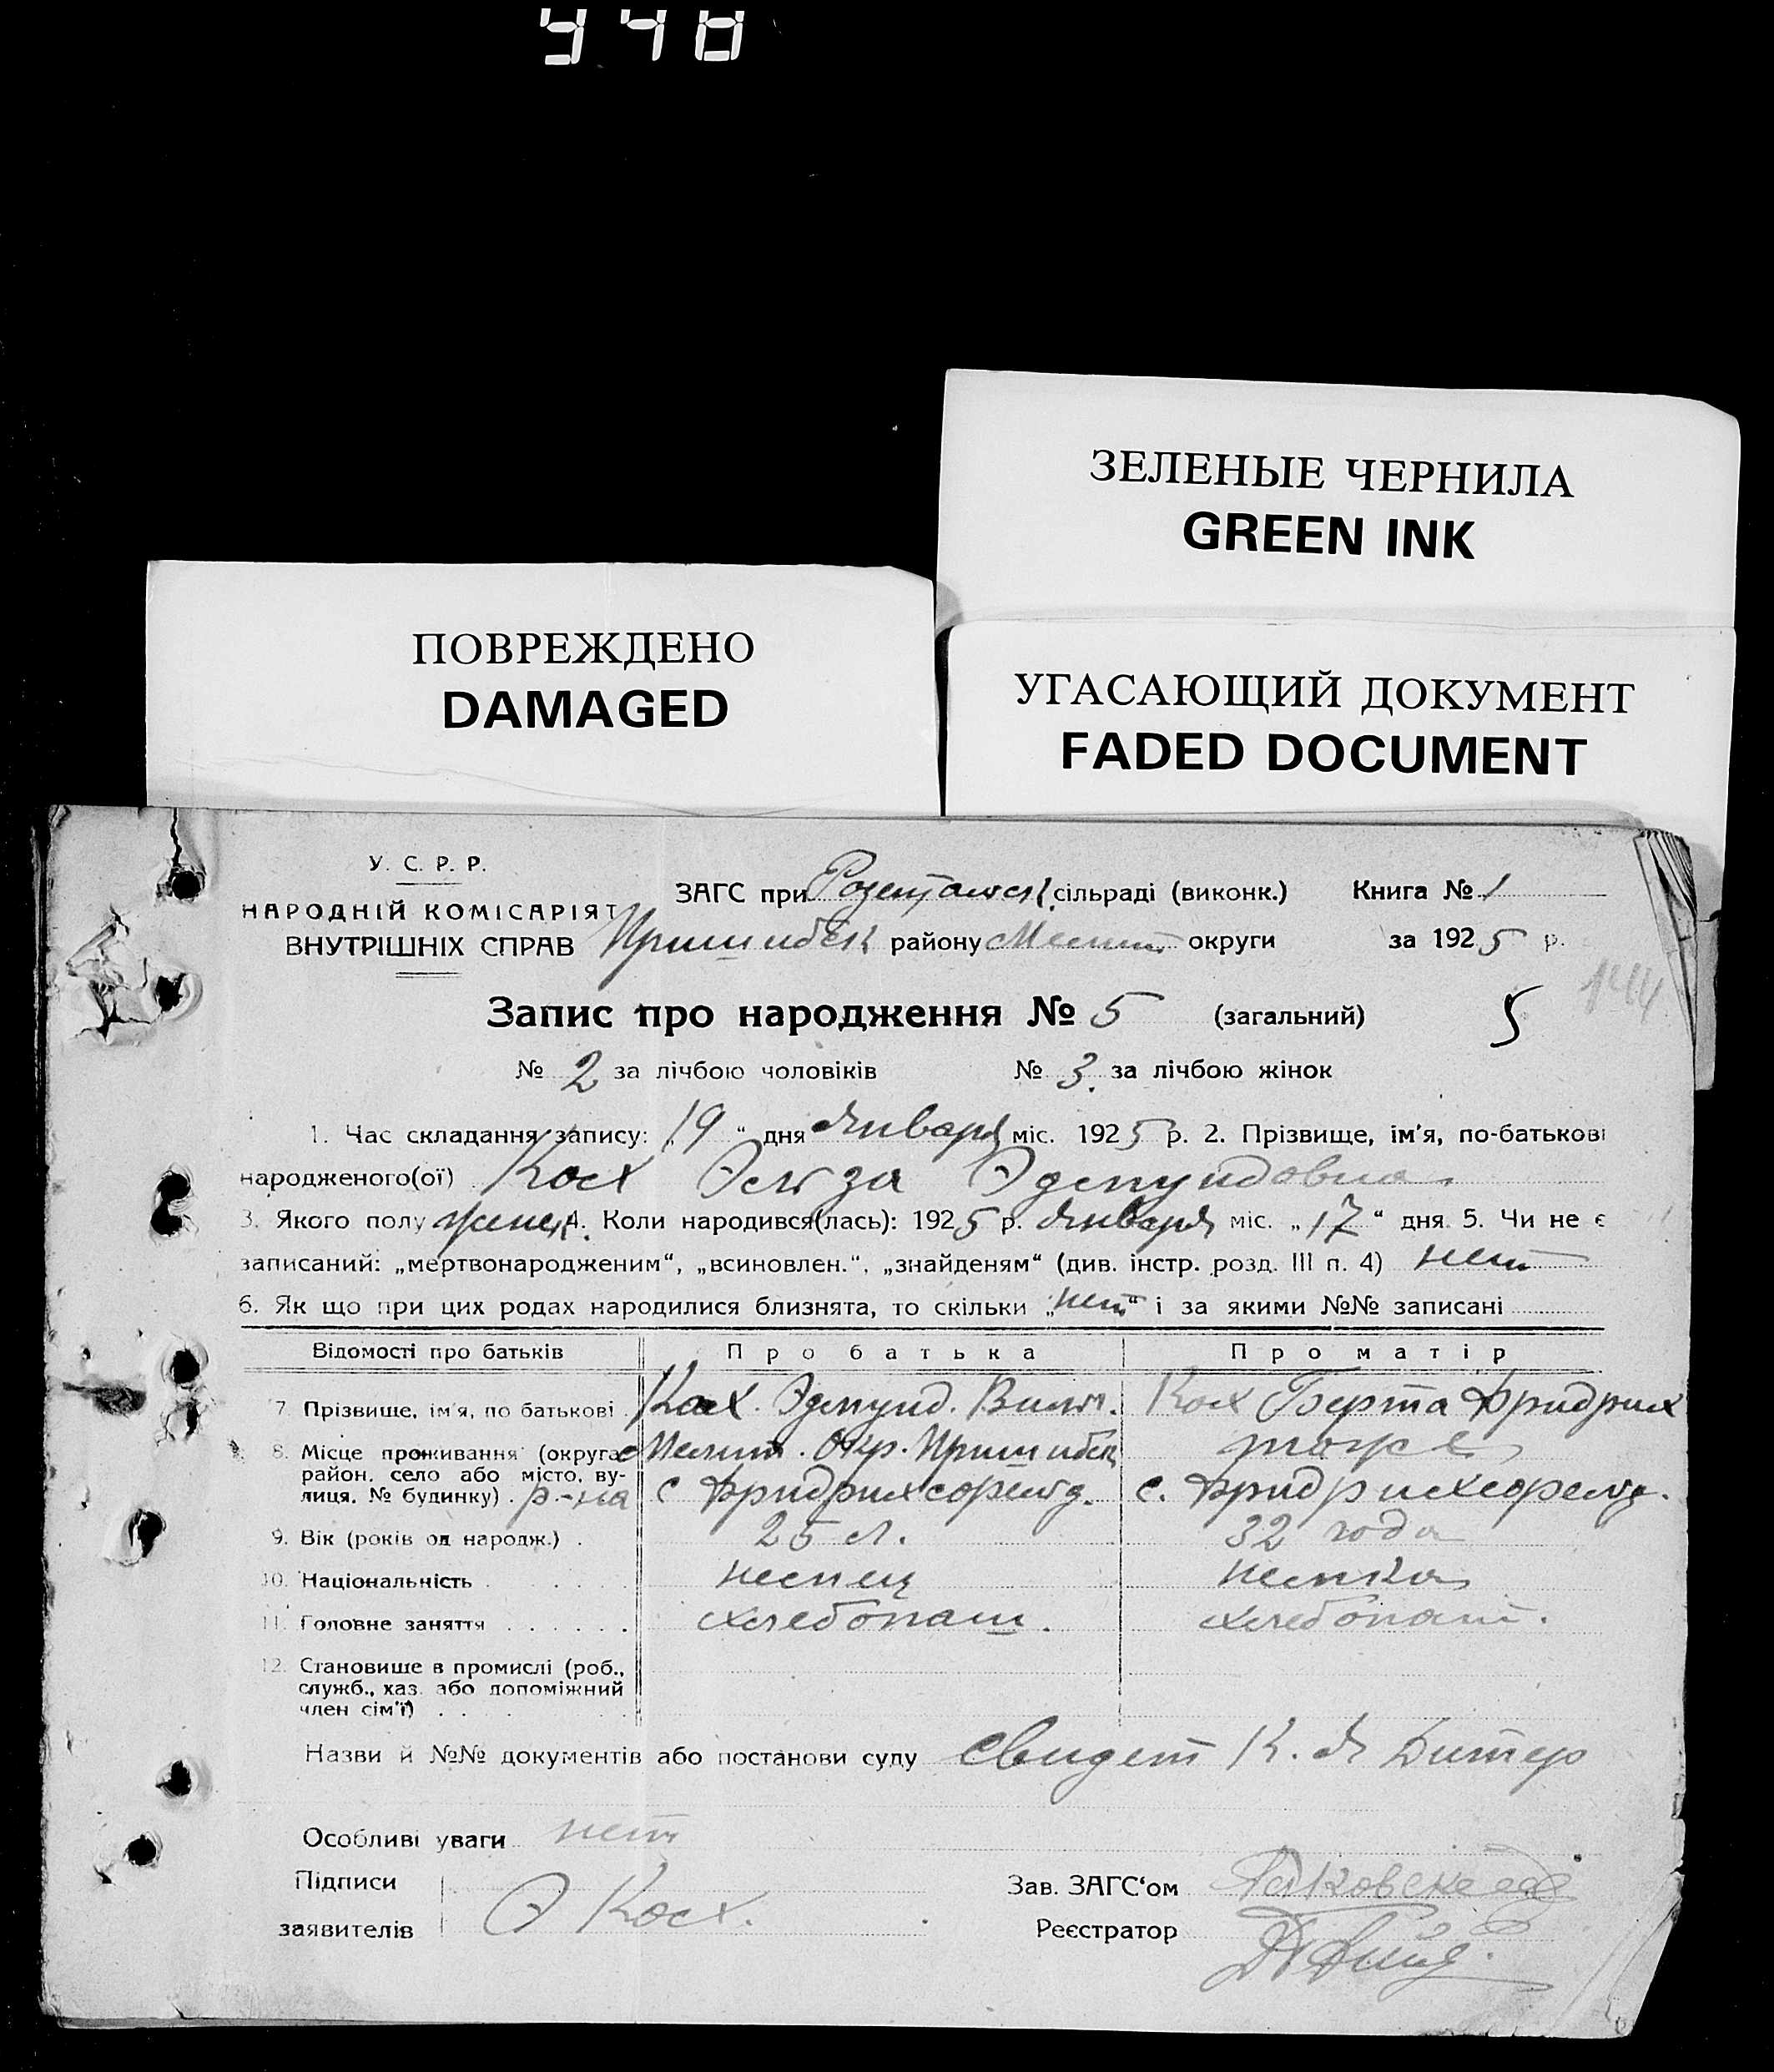 ЗЕЛЕНЫЕ ЧЕРНИЛА
GREEN INK
ПОВРЕЖДЕНО
DAMAGED
УГАСАЮЩИЙ ДОКУМЕНТ
FADED DOCUMENT
У. С. Р. Р.
НАРОДНІЙ КОМІСАРІЯТ
ВНУТРІШНІХ СПРАВ
ЗАГС при сільраді (виконк.) Книга № 1
Пришибск району Мелит. округи за 1925 р.
144
Запис про народження № 5 (загальний) 5
№ 2 за лічбою чоловіків № 3. за лічбою жінок
1. Час складання запису: „19“ дня Января міс. 1925 р. 2. Прізвище, ім'я, по-батькові
народженого(ої) Кох Эльза Эдмундовна
3. Якого полу женск. 4. Коли народився(лась): 1925 р. Января міс. „17“ дня 5. Чи не є
записаний: „мертвонародженим“, „всиновлен.“, „знайденям“ (див. інстр. розд. III п. 4) нет
6. Як що при цих родах народилися близнята, то скільки „нет“ і за якими №№ записані
Відомості про батьків Про батька Про матір
7. Прізвище, ім'я, по батькові Кох Эдмунд. Вильг. Кох Берта Фридрих
8. Місце проживання (округа, район, село або місто, вулиця, № будинку) р-на Мелит. Окр. Пришибск с Фридрихсфельд. тоже с. Фридрихсфельд.
9. Вік (років од народж.) 25 л. 32 года
10. Національність немец немка
11. Головне заняття хлебопаш. хлебопаш.
12. Становище в промислі (роб.,
служб., хаз. або допоміжний
член сім'ї)
Назви й №№ документів або постанови суду свидет К. Я
Особливі уваги нет
Підписи
заявителів Э Кох.
Зав. ЗАГС'ом
Реєстратор